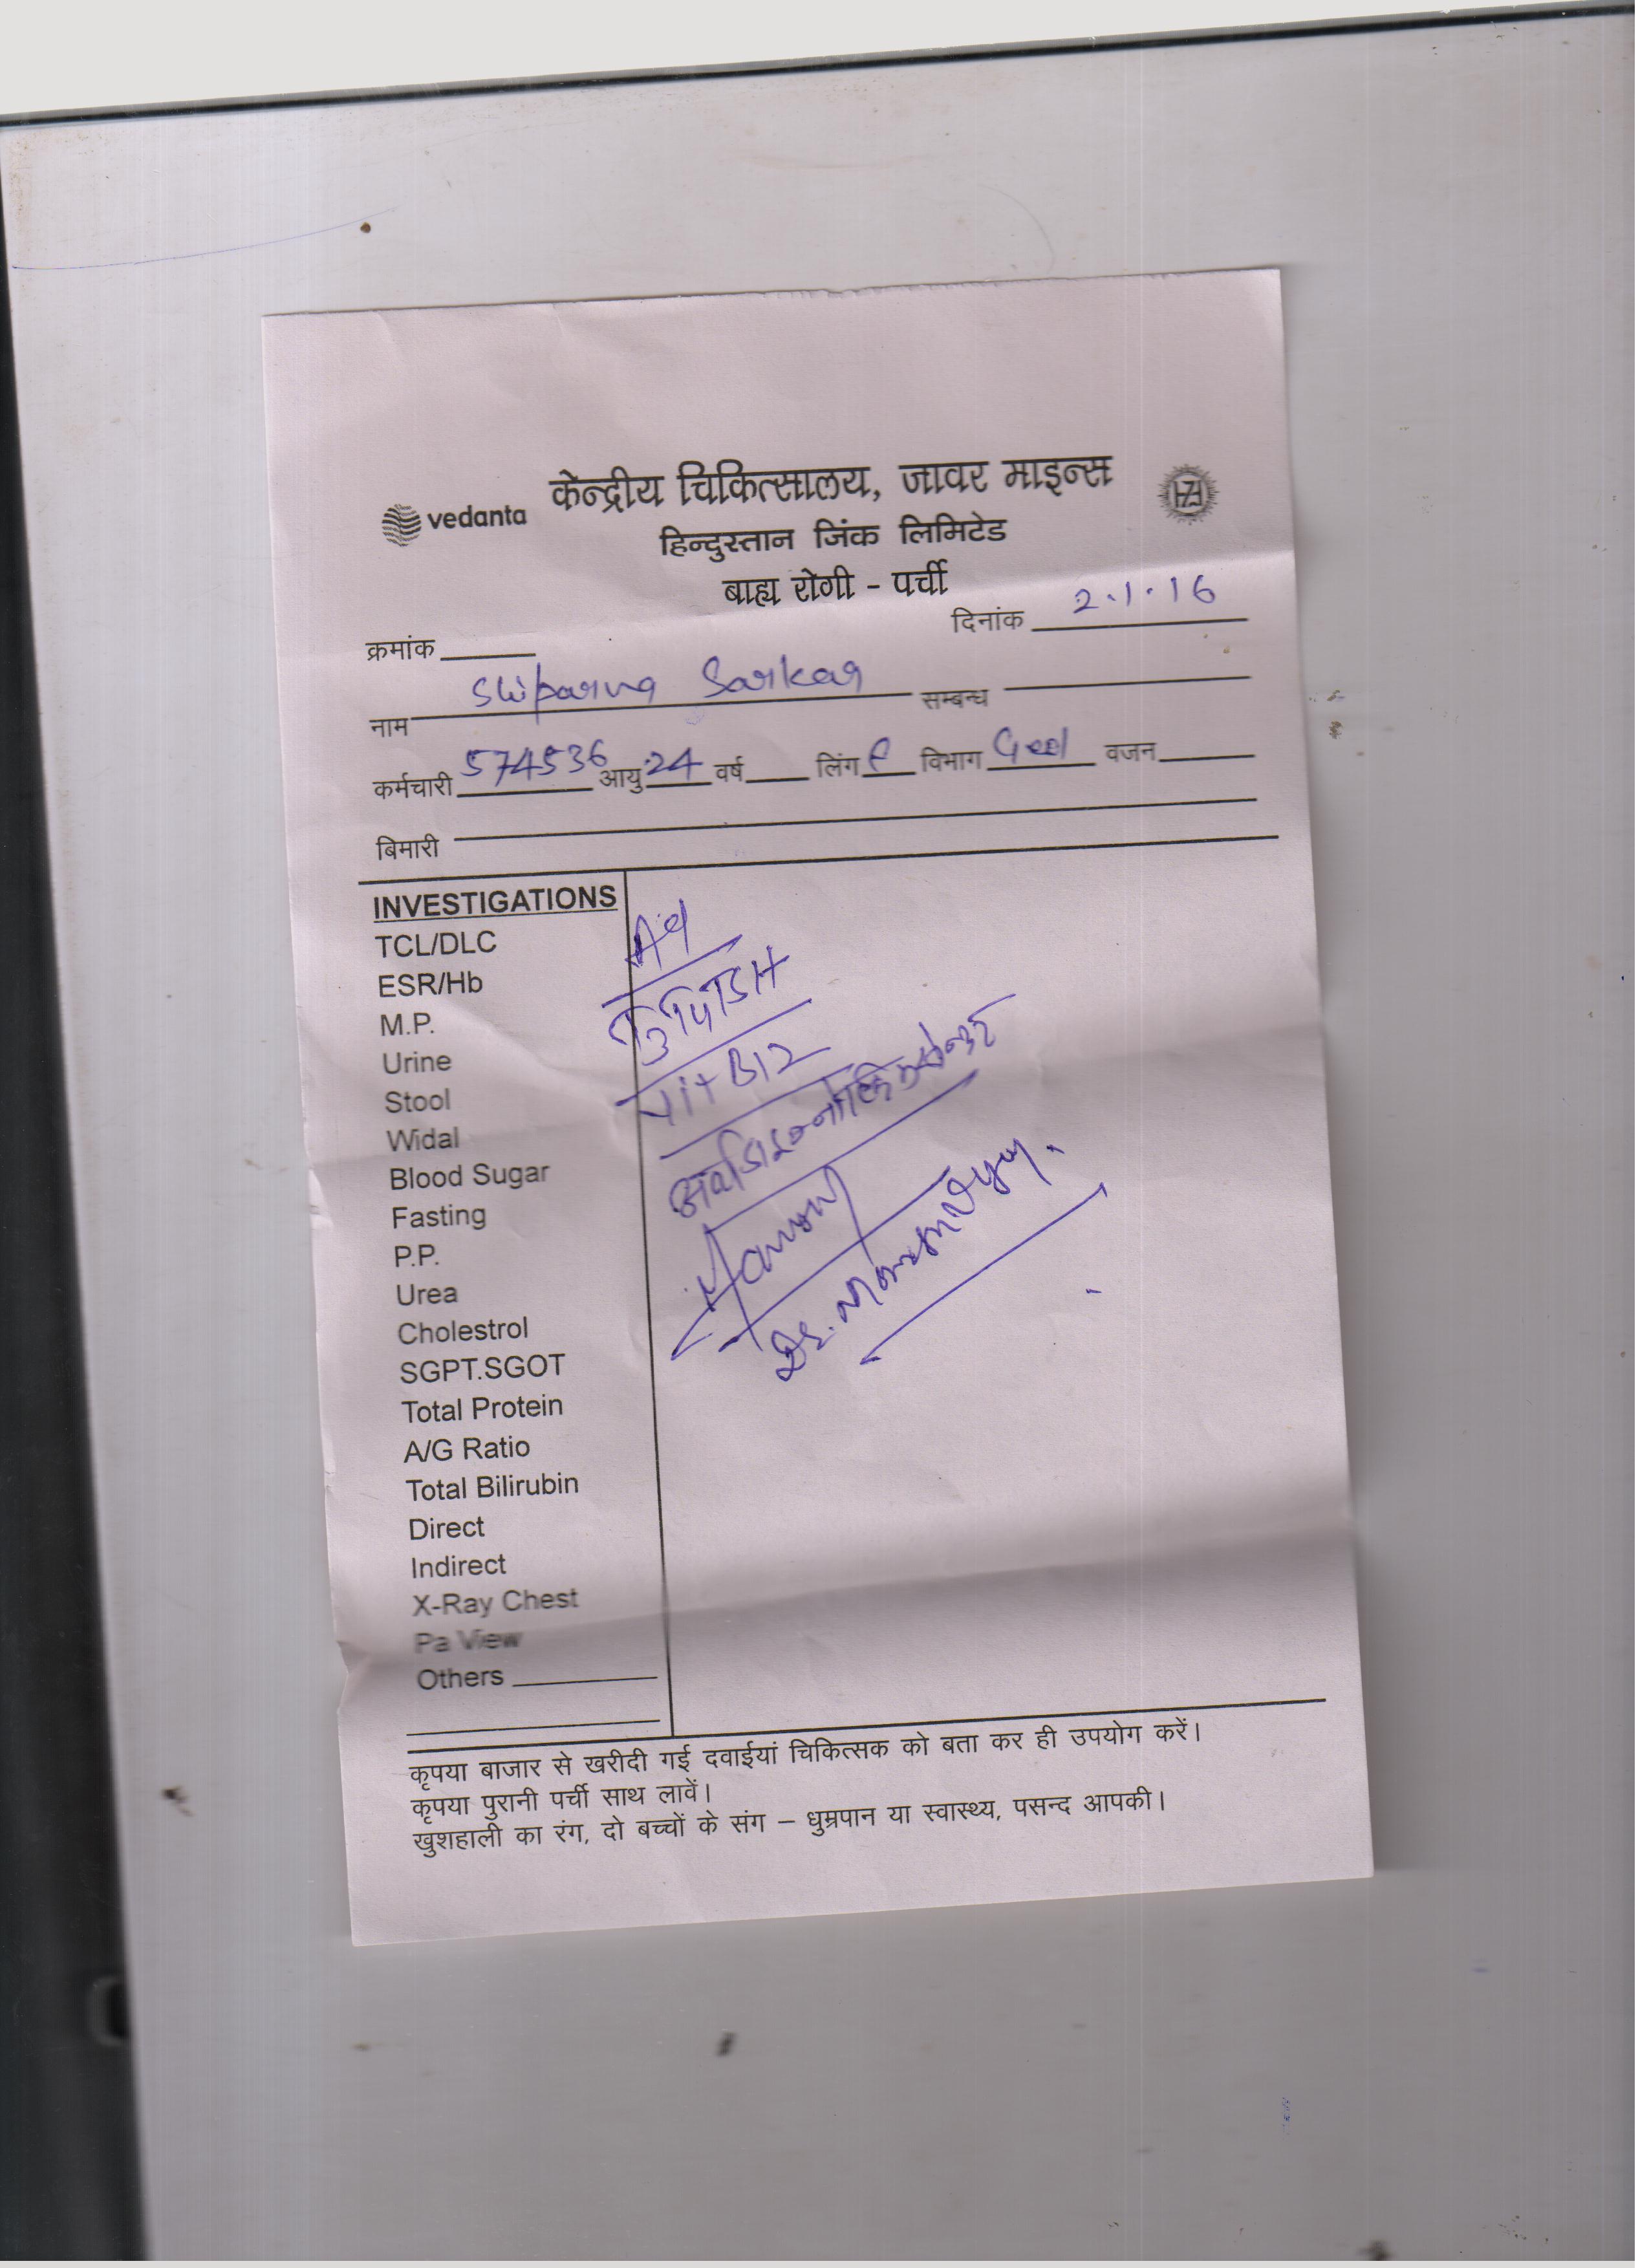 vedanta
केन्द्रीय चिकित्सालय, जावर माइन्स
HZ
हिन्दुस्तान जिंक लिमिटेड
बाह्य रोगी - पर्ची
क्रमांक दिनांक 2.1.16
नाम Shiparna Sarkar सम्बन्ध
कर्मचारी 574536 आयु 24 वर्ष लिंग F विभाग Geol वजन
बिमारी
INVESTIGATIONS
TCL/DLC
ESR/Hb
M.P.
Urine
Stool
Widal
Blood Sugar
Fasting
P.P.
Urea
Cholestrol
SGPT.SGOT
Total Protein
A/G Ratio
Total Bilirubin
Direct
Indirect
X-Ray Chest
Pa View
Others
Vit B12
Dr.
कृपया बाजार से खरीदी गई दवाईयां चिकित्सक को बता कर ही उपयोग करें।
कृपया पुरानी पर्ची साथ लावें।
खुशहाली का रंग, दो बच्चों के संग – धुम्रपान या स्वास्थ्य, पसन्द आपकी।